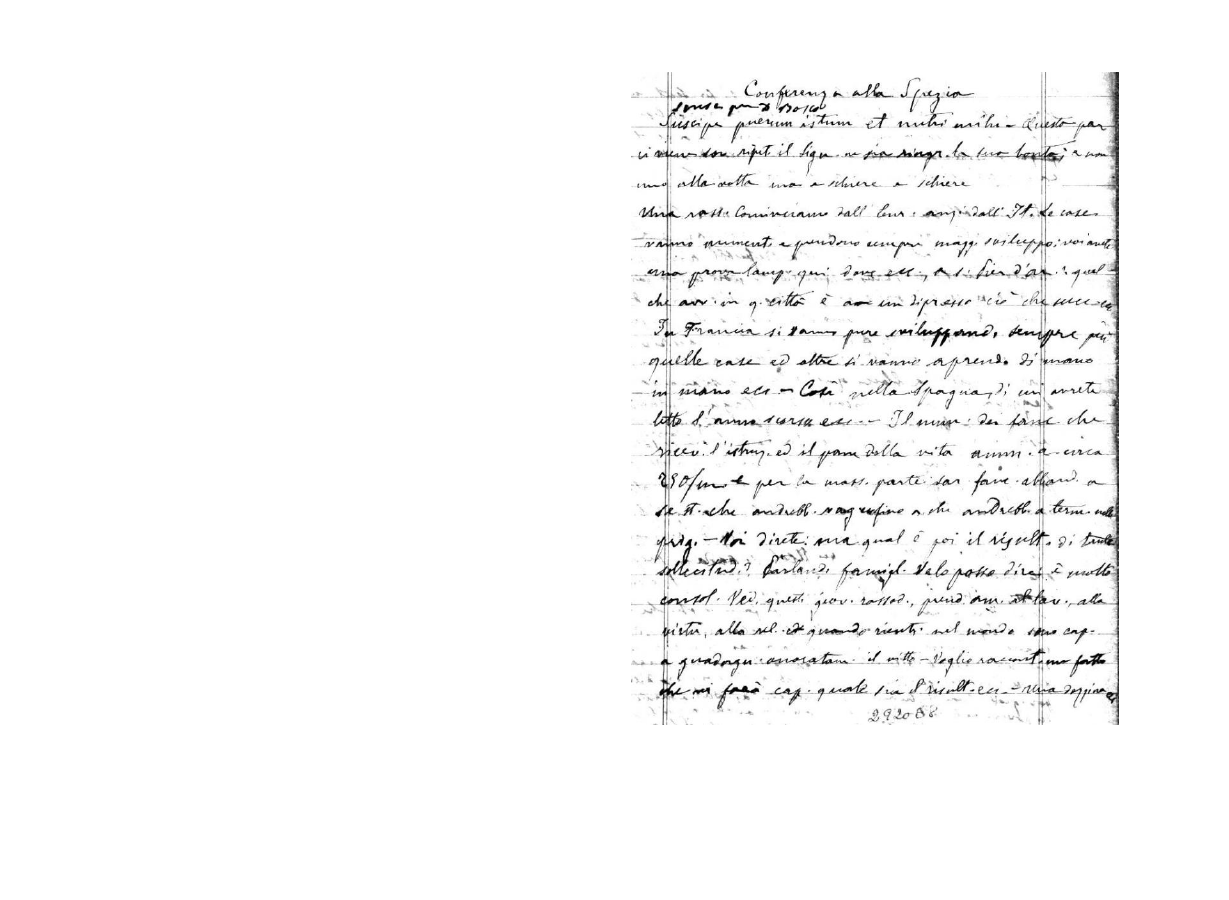 Conferenza alla Spezia
scusa per D Bosco
Suscipe puerum istum et nutri mihi – Questo par
ripet il Sign. ne sia ringr. la sua bontà; e non
uno alla volta ma a schiere a schiere
Una volta Cominciamo dall' Eur. anzi dall' It. Le case
vanno aument. e prendono sempre magg. sviluppo; voi avete
una prova lamp. qui dove ecc., a S. Pier d'Ar.: quel
che avv. in q. città è a un dipresso ciò che succ.
In Francia si vanno pure sviluppando sempre più
quelle case ed altre si vanno aprendo di mano
in mano ecc – Così nella Spagna, di cui avrete
letto l'anno scorso ecc. – Il num. dei fanc. che
ricev. l'istruz. ed il pane della vita amm. a circa
250/m e per la mass. parte sar. fanc. abband. a
se st. che andrebb. e che andrebb. a term. nelle
prig. – Voi direte: ma qual è poi il risult. di tante
sollecitud.? Parlando famigl. Ve lo posso dire: è molto
consol. Ved. questi giov. rassod., prend. am. al lav., alla
virtù, alla rel. e quando rientr. nel mondo sono cap.
a guadagn. onoratam. il vitto – Voglio raccont. un fatto
che vi farà cap. quale sia il risult. ecc. – Una dozzina
292088